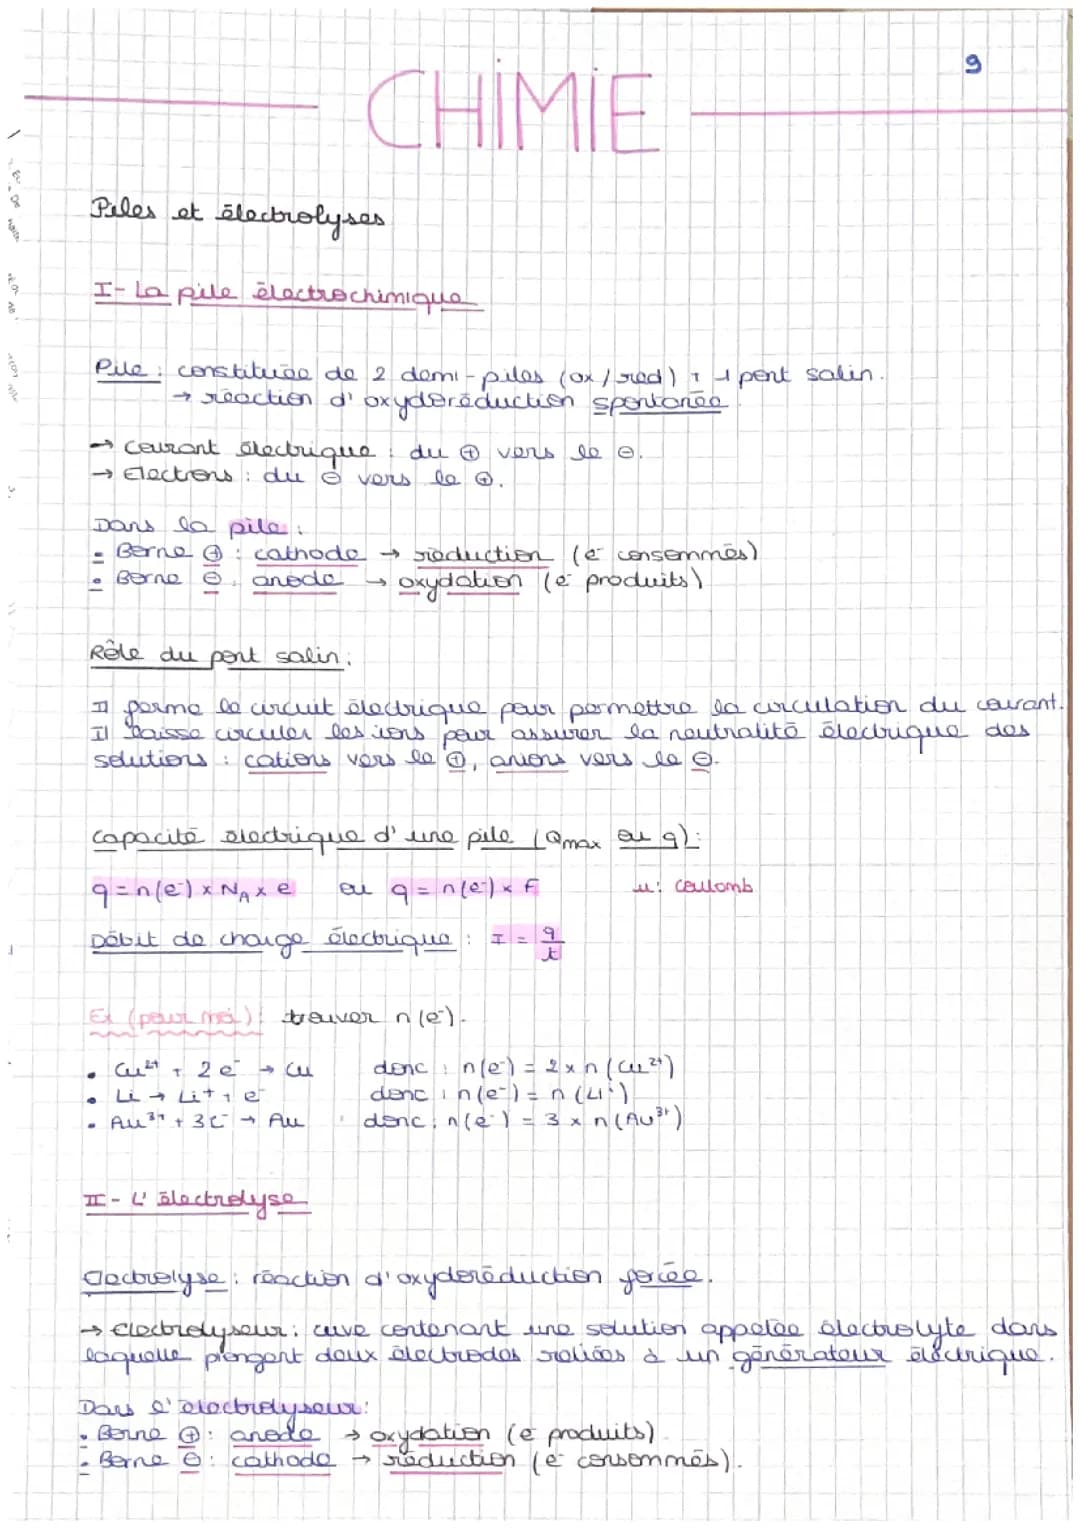 9
CHiMiE
Piles et électrolyses
I- La pile électrochimique
Pile : constituée de 2 demi-piles (ox/red) + 1 pont salin.
→ réaction d'oxydoréduction spontanée
→ Courant électrique : du ⊕ vers le ⊖.
→ Electrons : du ⊖ vers le ⊕.
Dans la pile :
• Borne ⊕ : cathode → réduction (e⁻ consommés)
• Borne ⊖ : anode → oxydation (e⁻ produits)
Rôle du pont salin :
Il ferme le circuit électrique pour permettre la circulation du courant.
Il laisse circuler les ions pour assurer la neutralité électrique des
solutions : cations vers le ⊕, anions vers le ⊖.
Capacité électrique d'une pile (Qmax ou q) :
q = n(e⁻) x N_A x e ou q = n(e⁻) x F u : Coulomb
Débit de charge électrique : I = q/t
Ex (pour moi) : trouver n(e⁻).
• Cu²⁺ + 2e⁻ → Cu donc : n(e⁻) = 2 x n(Cu²⁺)
• Li → Li⁺ + e⁻ donc : n(e⁻) = n(Li⁺)
• Au³⁺ + 3e⁻ → Au donc : n(e⁻) = 3 x n(Au³⁺)
II- L'électrolyse
Electrolyse : réaction d'oxydoréduction forcée.
→ Electrolyseur : cuve contenant une solution appelée électrolyte dans
laquelle plongent deux électrodes reliées à un générateur électrique.
Dans l'électrolyseur :
• Borne ⊕ : anode → oxydation (e⁻ produits)
• Borne ⊖ : cathode → réduction (e⁻ consommés).